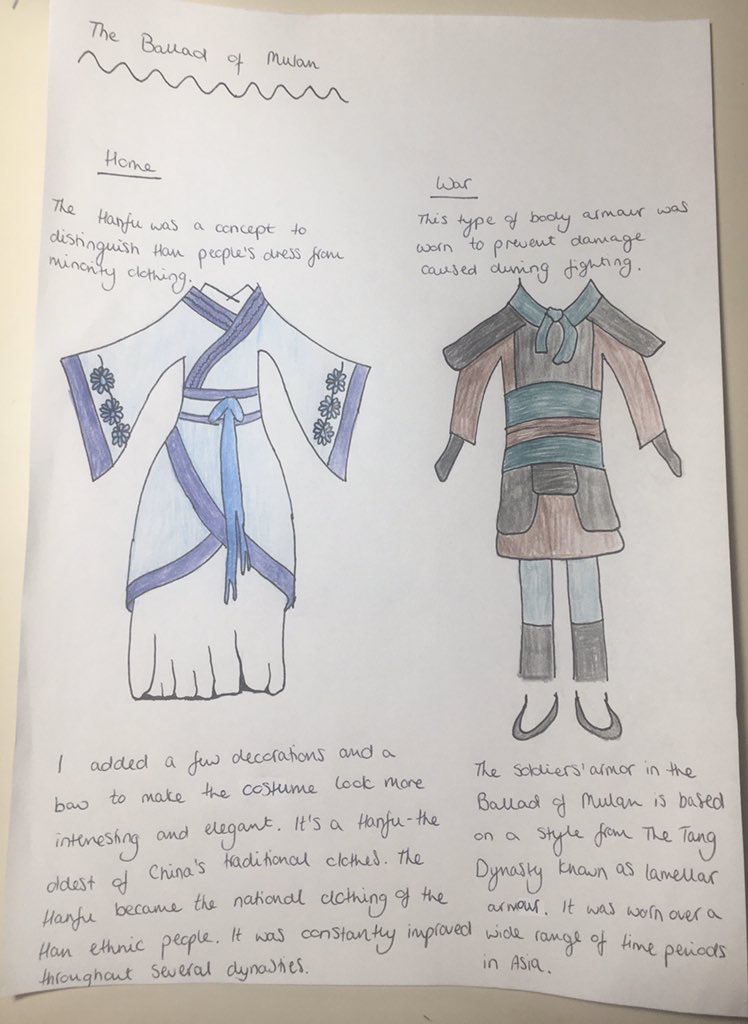 The Ballad of Mulan
Home
The Hanfu was a concept to
distinguish Han people's dress from
minority clothing.
War
This type of body armour was
worn to prevent damage
caused during fighting.
I added a few decorations and a
bow to make the costume look more
interesting and elegant. It's a Hanfu-the
oldest of China's traditional clothes. The
Hanfu became the national clothing of the
Han ethnic people. It was constantly improved
throughout several dynasties.
The soldiers' armor in the
Ballad of Mulan is based
on a style from The Tang
Dynasty known as lamellar
armour. It was worn over a
wide range of time periods
in Asia.